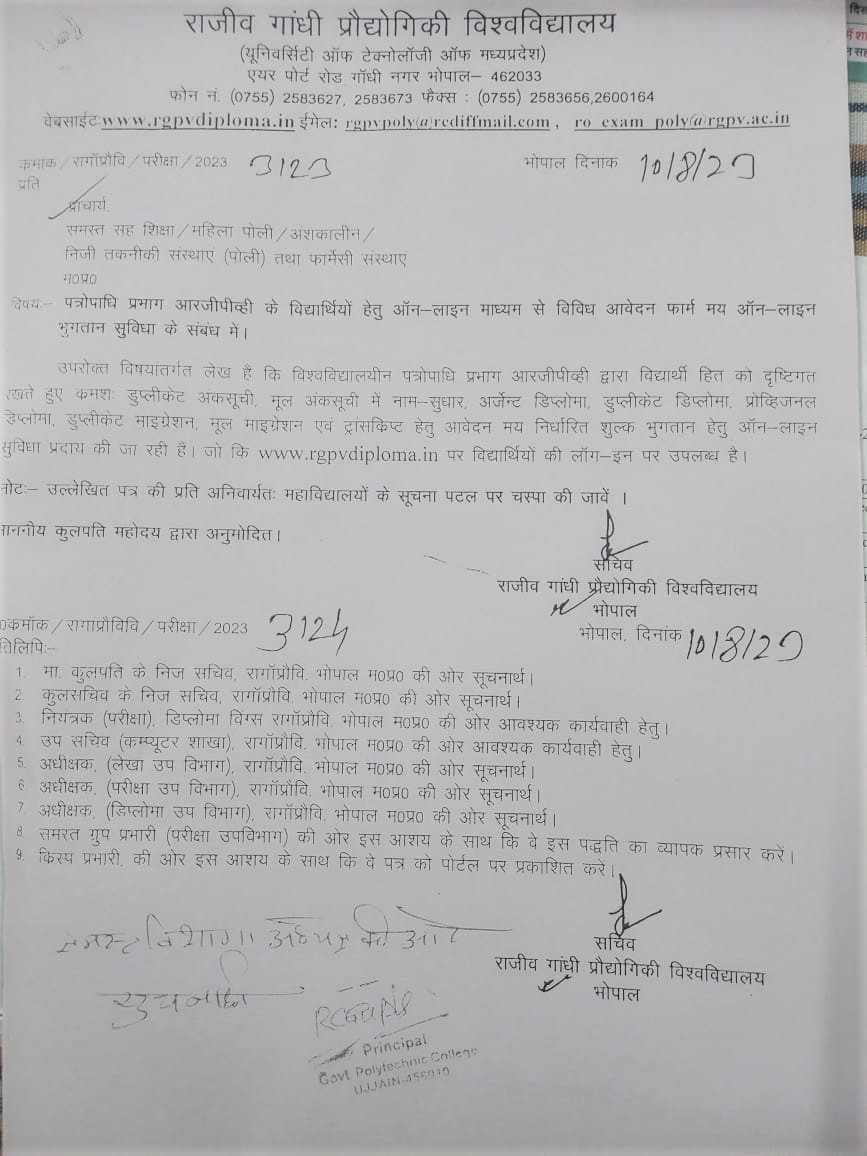 राजीव गांधी प्रौद्योगिकी विश्वविद्यालय
(यूनिवर्सिटी ऑफ टेक्नोलॉजी ऑफ मध्यप्रदेश)
एयर पोर्ट रोड़ गॉधी नगर भोपाल– 462033
फोन नं. (0755) 2583627, 2583673 फैक्स : (0755) 2583656,2600164
वेबसाईटःwww.rgpvdiploma.in ईमेलः rgpvpoly@rediffmail.com , ro_exam_poly@rgpv.ac.in
कमांक/रागॉप्रौवि/परीक्षा/2023 3123 भोपाल दिनांक 10/8/23
प्रति
प्राचार्य,
समस्त सह शिक्षा/महिला पोली/अंशकालीन/
निजी तकनीकी संस्थाएं (पोली) तथा फार्मेसी संस्थाए
म0प्र0
विषयः– पत्रोपाधि प्रभाग आरजीपीव्ही के विद्यार्थियों हेतु ऑन–लाइन माध्यम से विविध आवेदन फार्म मय ऑन–लाइन
भुगतान सुविधा के संबंध में।
उपरोक्त विषयांतर्गत लेख है कि विश्वविद्यालयीन पत्रोपाधि प्रभाग आरजीपीव्ही द्वारा विद्यार्थी हित को दृष्टिगत
रखते हुए कमशः डुप्लीकेट अंकसूची, मूल अंकसूची में नाम–सुधार, अर्जेन्ट डिप्लोमा, डुप्लीकेट डिप्लोमा, प्रोव्हिजनल
डिप्लोमा, डुप्लीकेट माइग्रेशन, मूल माइग्रेशन एवं ट्रांसकिप्ट हेतु आवेदन मय निर्धारित शुल्क भुगतान हेतु ऑन–लाइन
सुविधा प्रदाय की जा रही है। जो कि www.rgpvdiploma.in पर विद्यार्थियों की लॉग–इन पर उपलब्ध है।
नोटः– उल्लेखित पत्र की प्रति अनिवार्यतः महाविद्यालयों के सूचना पटल पर चस्पा की जावें ।
माननीय कुलपति महोदय द्वारा अनुमोदित।
सचिव
राजीव गांधी प्रौद्योगिकी विश्वविद्यालय
भोपाल
कमॉक/रागांप्रौविवि/परीक्षा/2023 3124 भोपाल, दिनांक 10/8/23
तिलिपिः–
1. मा. कुलपति के निज सचिव, रागॉप्रौवि. भोपाल म0प्र0 की ओर सूचनार्थ।
2. कुलसचिव के निज सचिव, रागॉप्रौवि. भोपाल म0प्र0 की ओर सूचनार्थ।
3. नियंत्रक (परीक्षा), डिप्लोमा विंग्स रागॉप्रौवि. भोपाल म0प्र0 की ओर आवश्यक कार्यवाही हेतु।
4. उप सचिव (कम्प्यूटर शाखा), रागॉप्रौवि. भोपाल म0प्र0 की ओर आवश्यक कार्यवाही हेतु।
5. अधीक्षक, (लेखा उप विभाग), रागॉप्रौवि. भोपाल म0प्र0 की ओर सूचनार्थ।
6. अधीक्षक, (परीक्षा उप विभाग), रागॉप्रौवि. भोपाल म0प्र0 की ओर सूचनार्थ।
7. अधीक्षक, (डिप्लोमा उप विभाग), रागॉप्रौवि. भोपाल म0प्र0 की ओर सूचनार्थ।
8. समस्त ग्रुप प्रभारी (परीक्षा उपविभाग) की ओर इस आशय के साथ कि वे इस पद्धति का व्यापक प्रसार करें।
9. किस्प प्रभारी, की ओर इस आशय के साथ कि वे पत्र को पोर्टल पर प्रकाशित करें।
समस्त विभागा अध्यक्ष की ओर
सुचनार्थ
सचिव
राजीव गांधी प्रौद्योगिकी विश्वविद्यालय
भोपाल
Principal
Govt. Polytechnic College
UJJAIN-456010